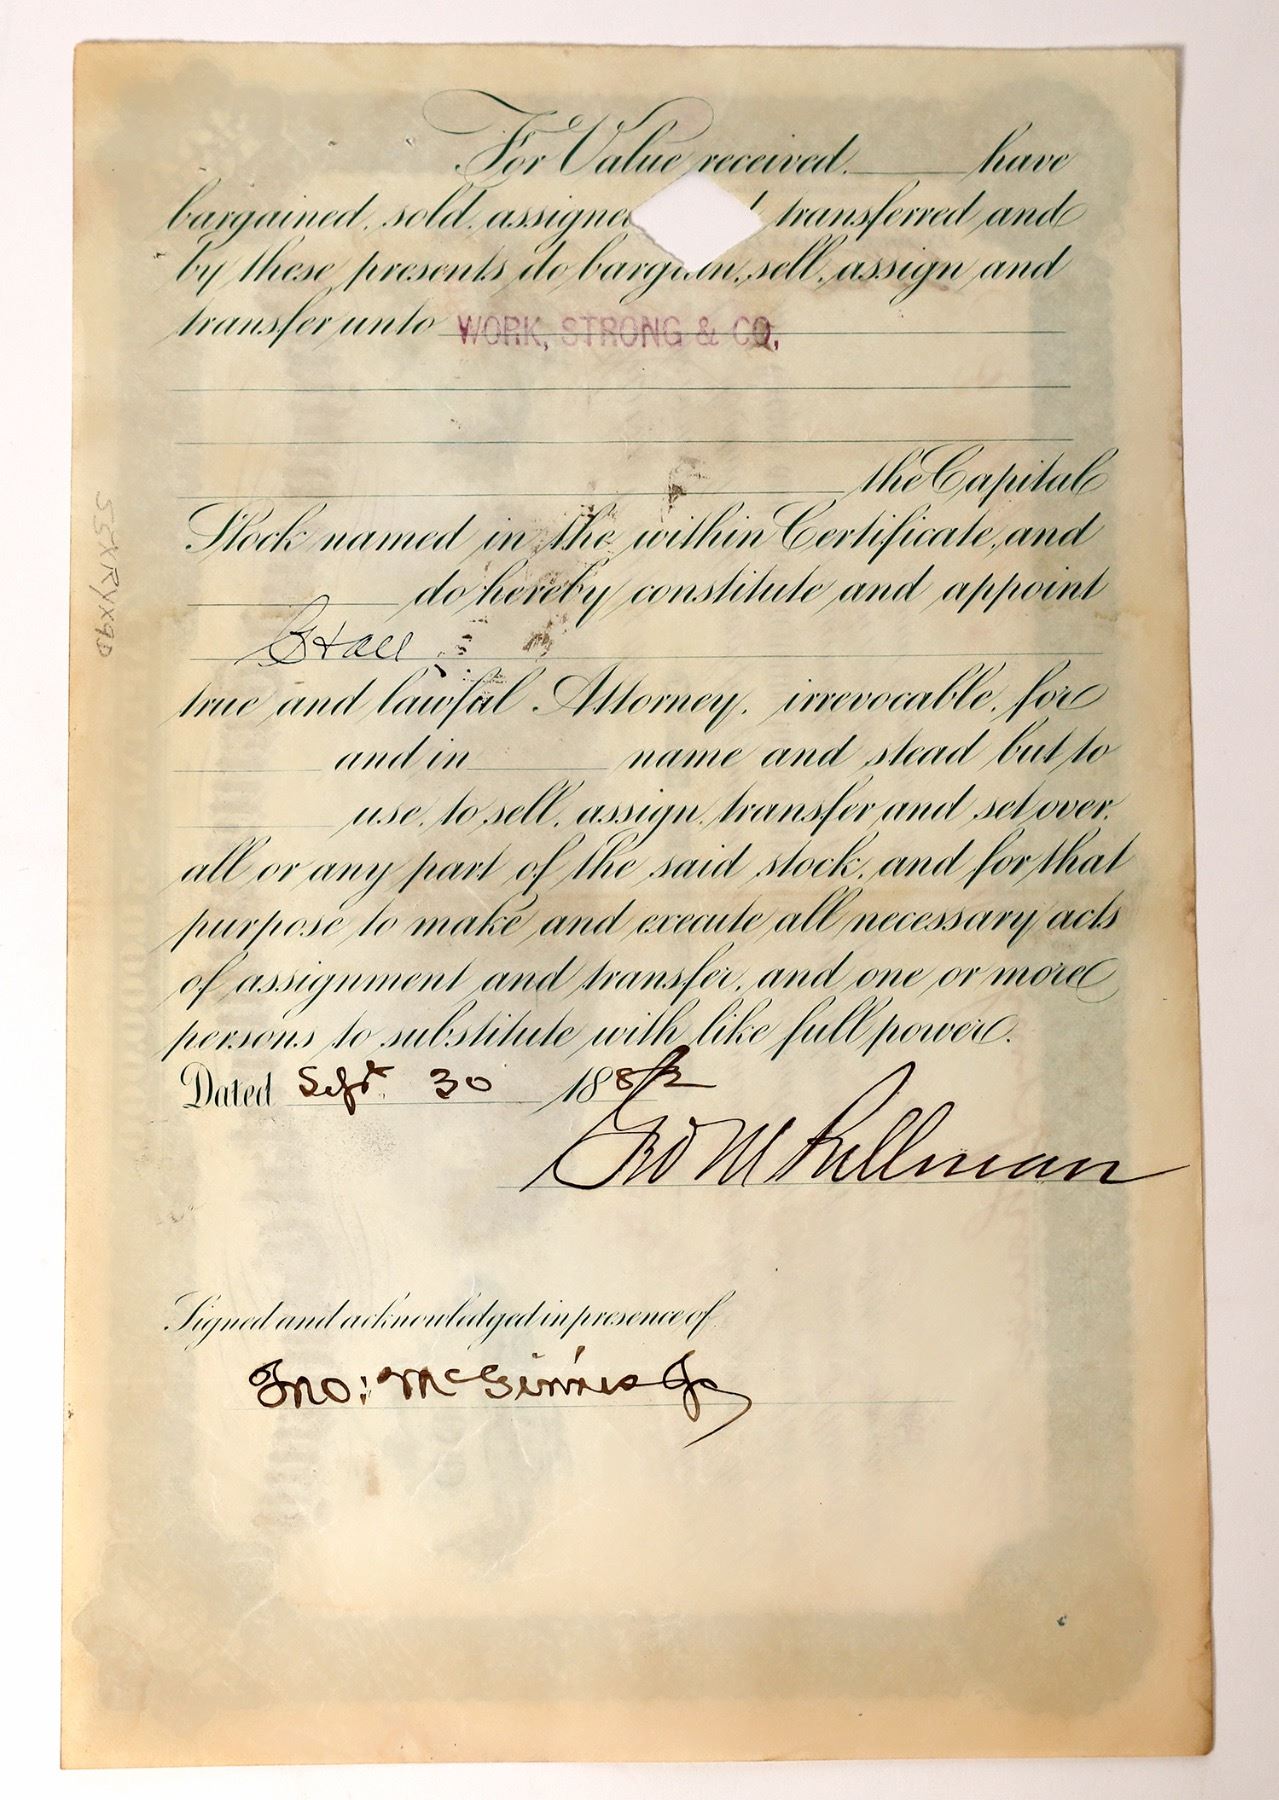 For Value received. have
bargained, sold, assigned transferred and
by these presents do bargain, sell, assign and
transfer unto WORK, STRONG & CO.
the Capital
Stock named in the within Certificate, and
do hereby constitute and appoint
true and lawful Attorney, irrevocable, for
and in name and stead but to
use, to sell, assign, transfer and set over,
all or any part of the said stock, and for that
purpose to make and execute all necessary acts
of assignment and transfer, and one or more
persons to substitute with like full power.
Dated Sept. 30 1882
Geo M Pullman
Signed and acknowledged in presence of
Jno: McGinnis Jr